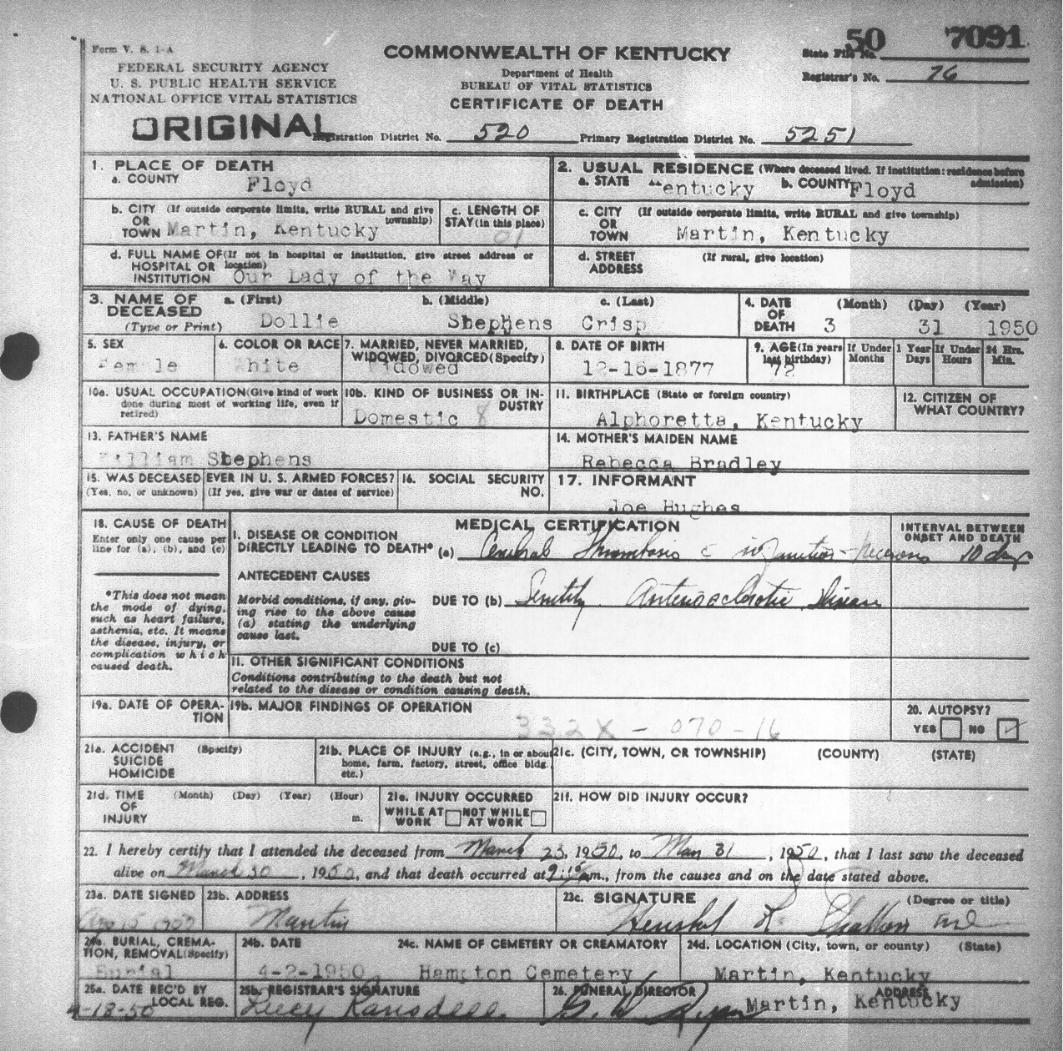 Form V. S. 1-A
FEDERAL SECURITY AGENCY
U. S. PUBLIC HEALTH SERVICE
NATIONAL OFFICE VITAL STATISTICS
ORIGINAL
COMMONWEALTH OF KENTUCKY
Department of Health
BUREAU OF VITAL STATISTICS
CERTIFICATE OF DEATH
State File No. 50 7091
Registrar's No. 76
Registration District No. 520 Primary Registration District No. 5251
1. PLACE OF DEATH
a. COUNTY Floyd
2. USUAL RESIDENCE (Where deceased lived. If institution: residence before admission)
a. STATE Kentucky b. COUNTY Floyd
b. CITY (If outside corporate limits, write RURAL and give township)
OR
TOWN Martin, Kentucky
c. LENGTH OF
STAY (in this place)
01
c. CITY (If outside corporate limits, write RURAL and give township)
OR
TOWN Martin, Kentucky
d. FULL NAME OF (If not in hospital or institution, give street address or location)
HOSPITAL OR
INSTITUTION Our Lady of the Way
d. STREET (If rural, give location)
ADDRESS
3. NAME OF DECEASED
(Type or Print)
a. (First) b. (Middle) c. (Last)
Dollie Stephens Crisp
4. DATE OF DEATH (Month) (Day) (Year)
3 31 1950
5. SEX
Female
6. COLOR OR RACE
White
7. MARRIED, NEVER MARRIED,
WIDOWED, DIVORCED (Specify)
Widowed
8. DATE OF BIRTH
12-16-1877
9. AGE (In years last birthday)
72
If Under 1 Year
Months Days
If Under 24 Hrs.
Hours Min.
10a. USUAL OCCUPATION (Give kind of work done during most of working life, even if retired)
10b. KIND OF BUSINESS OR INDUSTRY
Domestic 8
11. BIRTHPLACE (State or foreign country)
Alphoretta, Kentucky
12. CITIZEN OF WHAT COUNTRY?
13. FATHER'S NAME
William Stephens
14. MOTHER'S MAIDEN NAME
Rebecca Bradley
15. WAS DECEASED EVER IN U. S. ARMED FORCES?
(Yes, no, or unknown) (If yes, give war or dates of service)
16. SOCIAL SECURITY NO.
17. INFORMANT
Joe Hughes
18. CAUSE OF DEATH
Enter only one cause per
line for (a), (b), and (c)
*This does not mean
the mode of dying,
such as heart failure,
asthenia, etc. It means
the disease, injury, or
complication which
caused death.
MEDICAL CERTIFICATION
INTERVAL BETWEEN
ONSET AND DEATH
I. DISEASE OR CONDITION
DIRECTLY LEADING TO DEATH* (a) Cerebral Thrombosis 10 days
ANTECEDENT CAUSES
Morbid conditions, if any, giving rise to the above cause (a) stating the underlying cause last.
DUE TO (b) Senility Arteriosclerotic Disease
DUE TO (c)
II. OTHER SIGNIFICANT CONDITIONS
Conditions contributing to the death but not
related to the disease or condition causing death.
19a. DATE OF OPERATION
19b. MAJOR FINDINGS OF OPERATION
332X - 070-16
20. AUTOPSY?
YES NO ✓
21a. ACCIDENT (Specify)
SUICIDE
HOMICIDE
21b. PLACE OF INJURY (e.g., in or about
home, farm, factory, street, office bldg.
etc.)
21c. (CITY, TOWN, OR TOWNSHIP) (COUNTY) (STATE)
21d. TIME (Month) (Day) (Year) (Hour)
OF
INJURY m.
21e. INJURY OCCURRED
WHILE AT WORK NOT WHILE AT WORK
21f. HOW DID INJURY OCCUR?
22. I hereby certify that I attended the deceased from March 23, 1950, to Mar 31, 1950, that I last saw the deceased
alive on March 30, 1950, and that death occurred at 9:15 am., from the causes and on the date stated above.
23a. DATE SIGNED
23b. ADDRESS
Martin
23c. SIGNATURE (Degree or title)
24a. BURIAL, CREMATION, REMOVAL (Specify)
Burial
24b. DATE
4-2-1950
24c. NAME OF CEMETERY OR CREAMATORY
Hampton Cemetery
24d. LOCATION (City, town, or county) (State)
Martin, Kentucky
25a. DATE REC'D BY LOCAL REG.
4-18-50
25b. REGISTRAR'S SIGNATURE
Lucy Ransdell
26. FUNERAL DIRECTOR ADDRESS
Martin, Kentucky